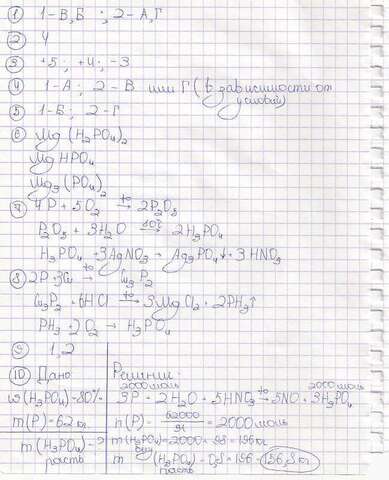 ① 1-В,Б ; 2-А,Г
② 4
③ +5; +4; -3
④ 1-А; 2-В или Г (в зависимости от условий)
⑤ 1-Б; 2-Г
⑥ Mg(H₂PO₄)₂
MgHPO₄
Mg₃(PO₄)₂
⑦ 4P + 5O₂ →t° 2P₂O₅
P₂O₅ + 3H₂O →t° 2H₃PO₄
H₃PO₄ + 3AgNO₃ → Ag₃PO₄↓ + 3HNO₃
⑧ 2P + 3Cu →t° Cu₃P₂
Cu₃P₂ + 6HCl →t° 3MgCl₂ + 2PH₃↑
PH₃ + 2O₂ → H₃PO₄
⑨ 1,2
⑩ Дано
ω(H₃PO₄)=80%
m(P)=62кг
m(H₃PO₄)-?
раств
Решение:
2000моль 2000моль
3P + 2H₂O + 5HNO₃ →t° 5NO + 3H₃PO₄
n(P) = 62000/31 = 2000моль
m(H₃PO₄)=2000·98=196кг
m (H₃PO₄)-0,8=156
раств